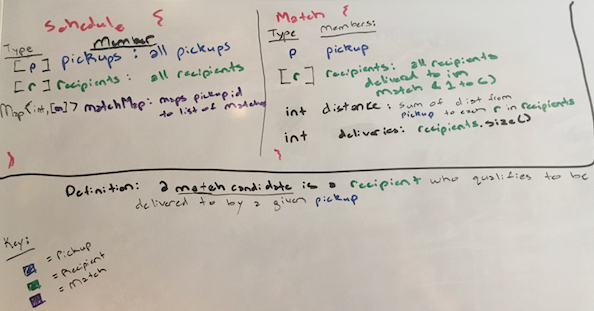 Schedule {
Type Member
[p] pickups : all pickups
[r] recipients: all recipients
Map<int,[m]> matchMap: maps pickup id
to list of matches
}
Match {
Type Members:
p pickup
[r] recipients: all recipients
delivered to in
match (1 to 6)
int distance: sum of dist from
pickup to each r in recipients
int deliveries: recipients.size()
}
Definition: a match candidate is a recipient who qualifies to be
delivered to by a given pickup
Key:
= Pickup
= Recipient
= Match